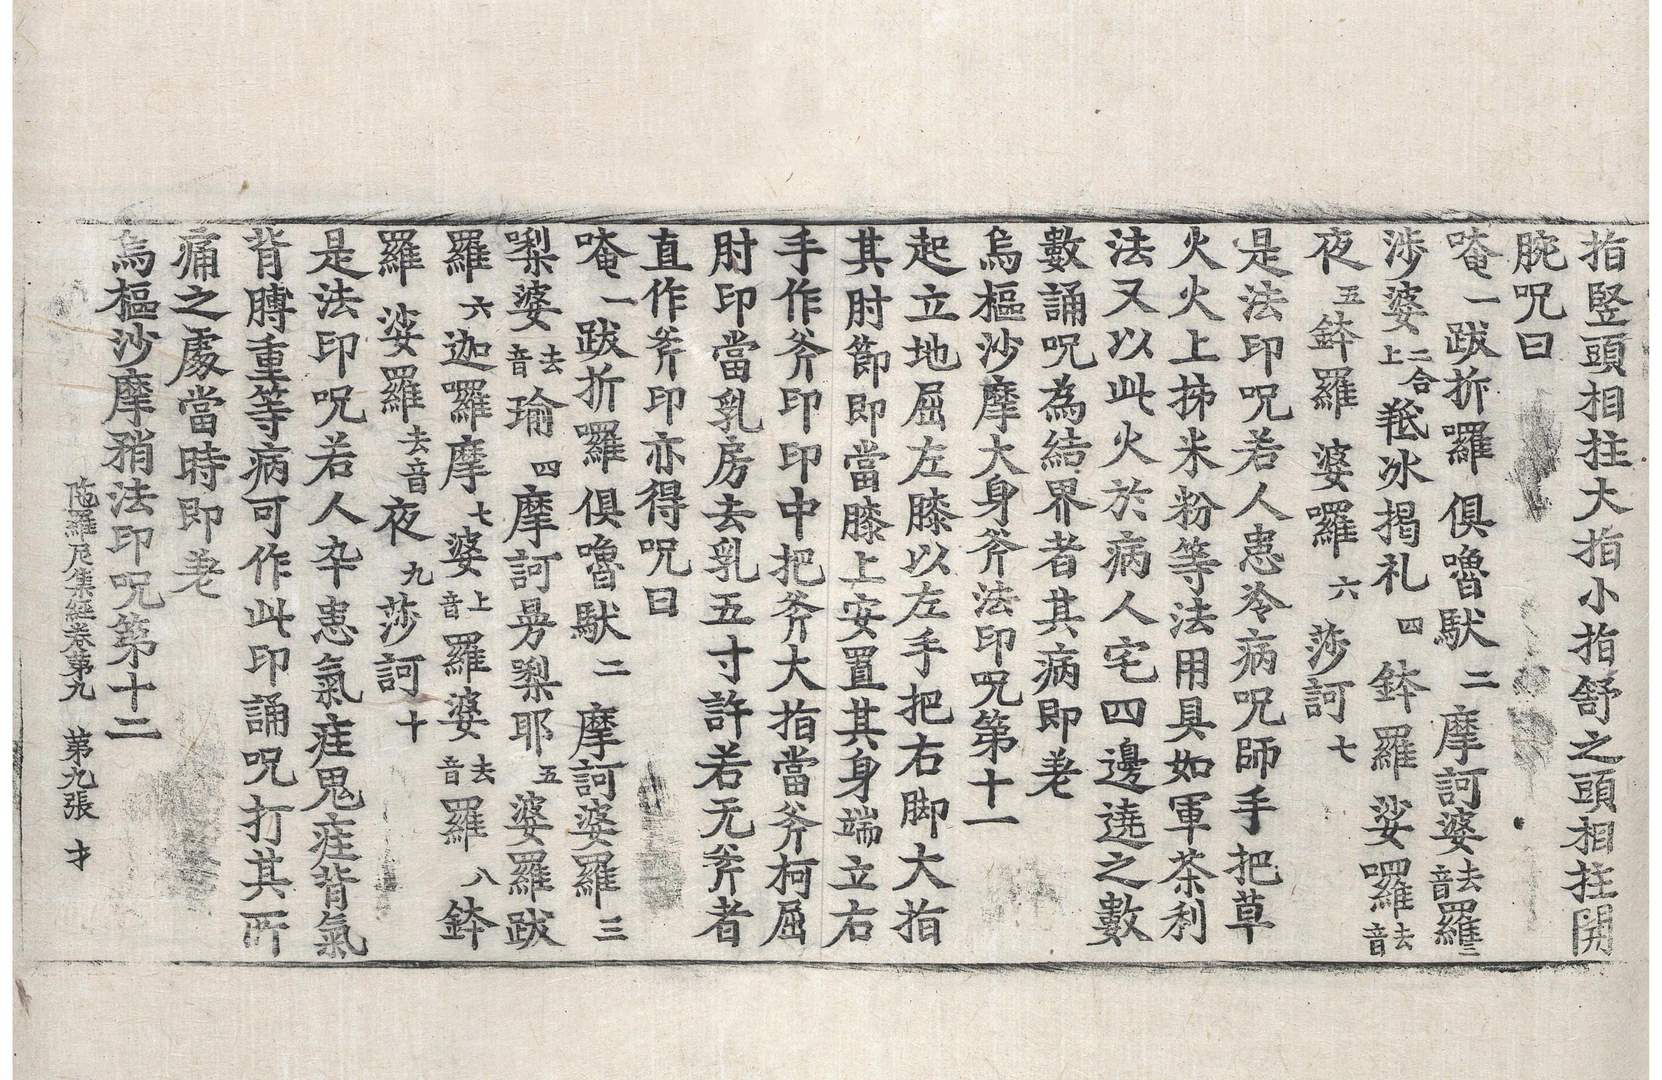 指竪頭相拄大指小指舒之頭相拄開
腕呪曰
唵一跋折囉俱嚕馱二摩訶婆去音羅三
涉婆二合上羝冰揭礼四鉢羅娑囉去音
夜五鉢羅婆囉六莎訶七
是法印呪若人患冷病呪師手把草
火火上捺米粉等法用具如軍荼利
法又以此火於病人宅四邊遶之數
數誦呪為結界者其病即差
烏樞沙摩大身斧法印呪第十一
起立地屈左膝以左手把右脚大指
其肘節即當膝上安置其身端立右
手作斧印印中把斧大指當斧柯屈
肘印當乳房去乳五寸許若无斧者
直作斧印亦得呪曰
唵一跋折囉俱嚕馱二摩訶婆羅三
㗚婆去音瑜四摩訶㝵㗚耶五婆羅跋
羅六迦囉摩七婆上音羅婆去音羅八鉢
羅娑羅去音夜九莎訶十
是法印呪若人卒患氣疰鬼疰背氣
背膊重等病可作此印誦呪打其所
痛之處當時即差
烏樞沙摩矟法印呪第十二
陁羅尼集經卷第九 第九張 才